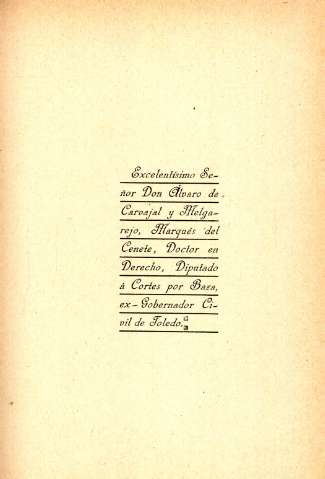 Excelentísimo Se-
ñor Don Álvaro de
Carvajal y Melga-
rejo, Marqués del
Cenete, Doctor en
Derecho, Diputado
á Cortes por Baza,
ex-Gobernador Ci-
vil de Toledo.